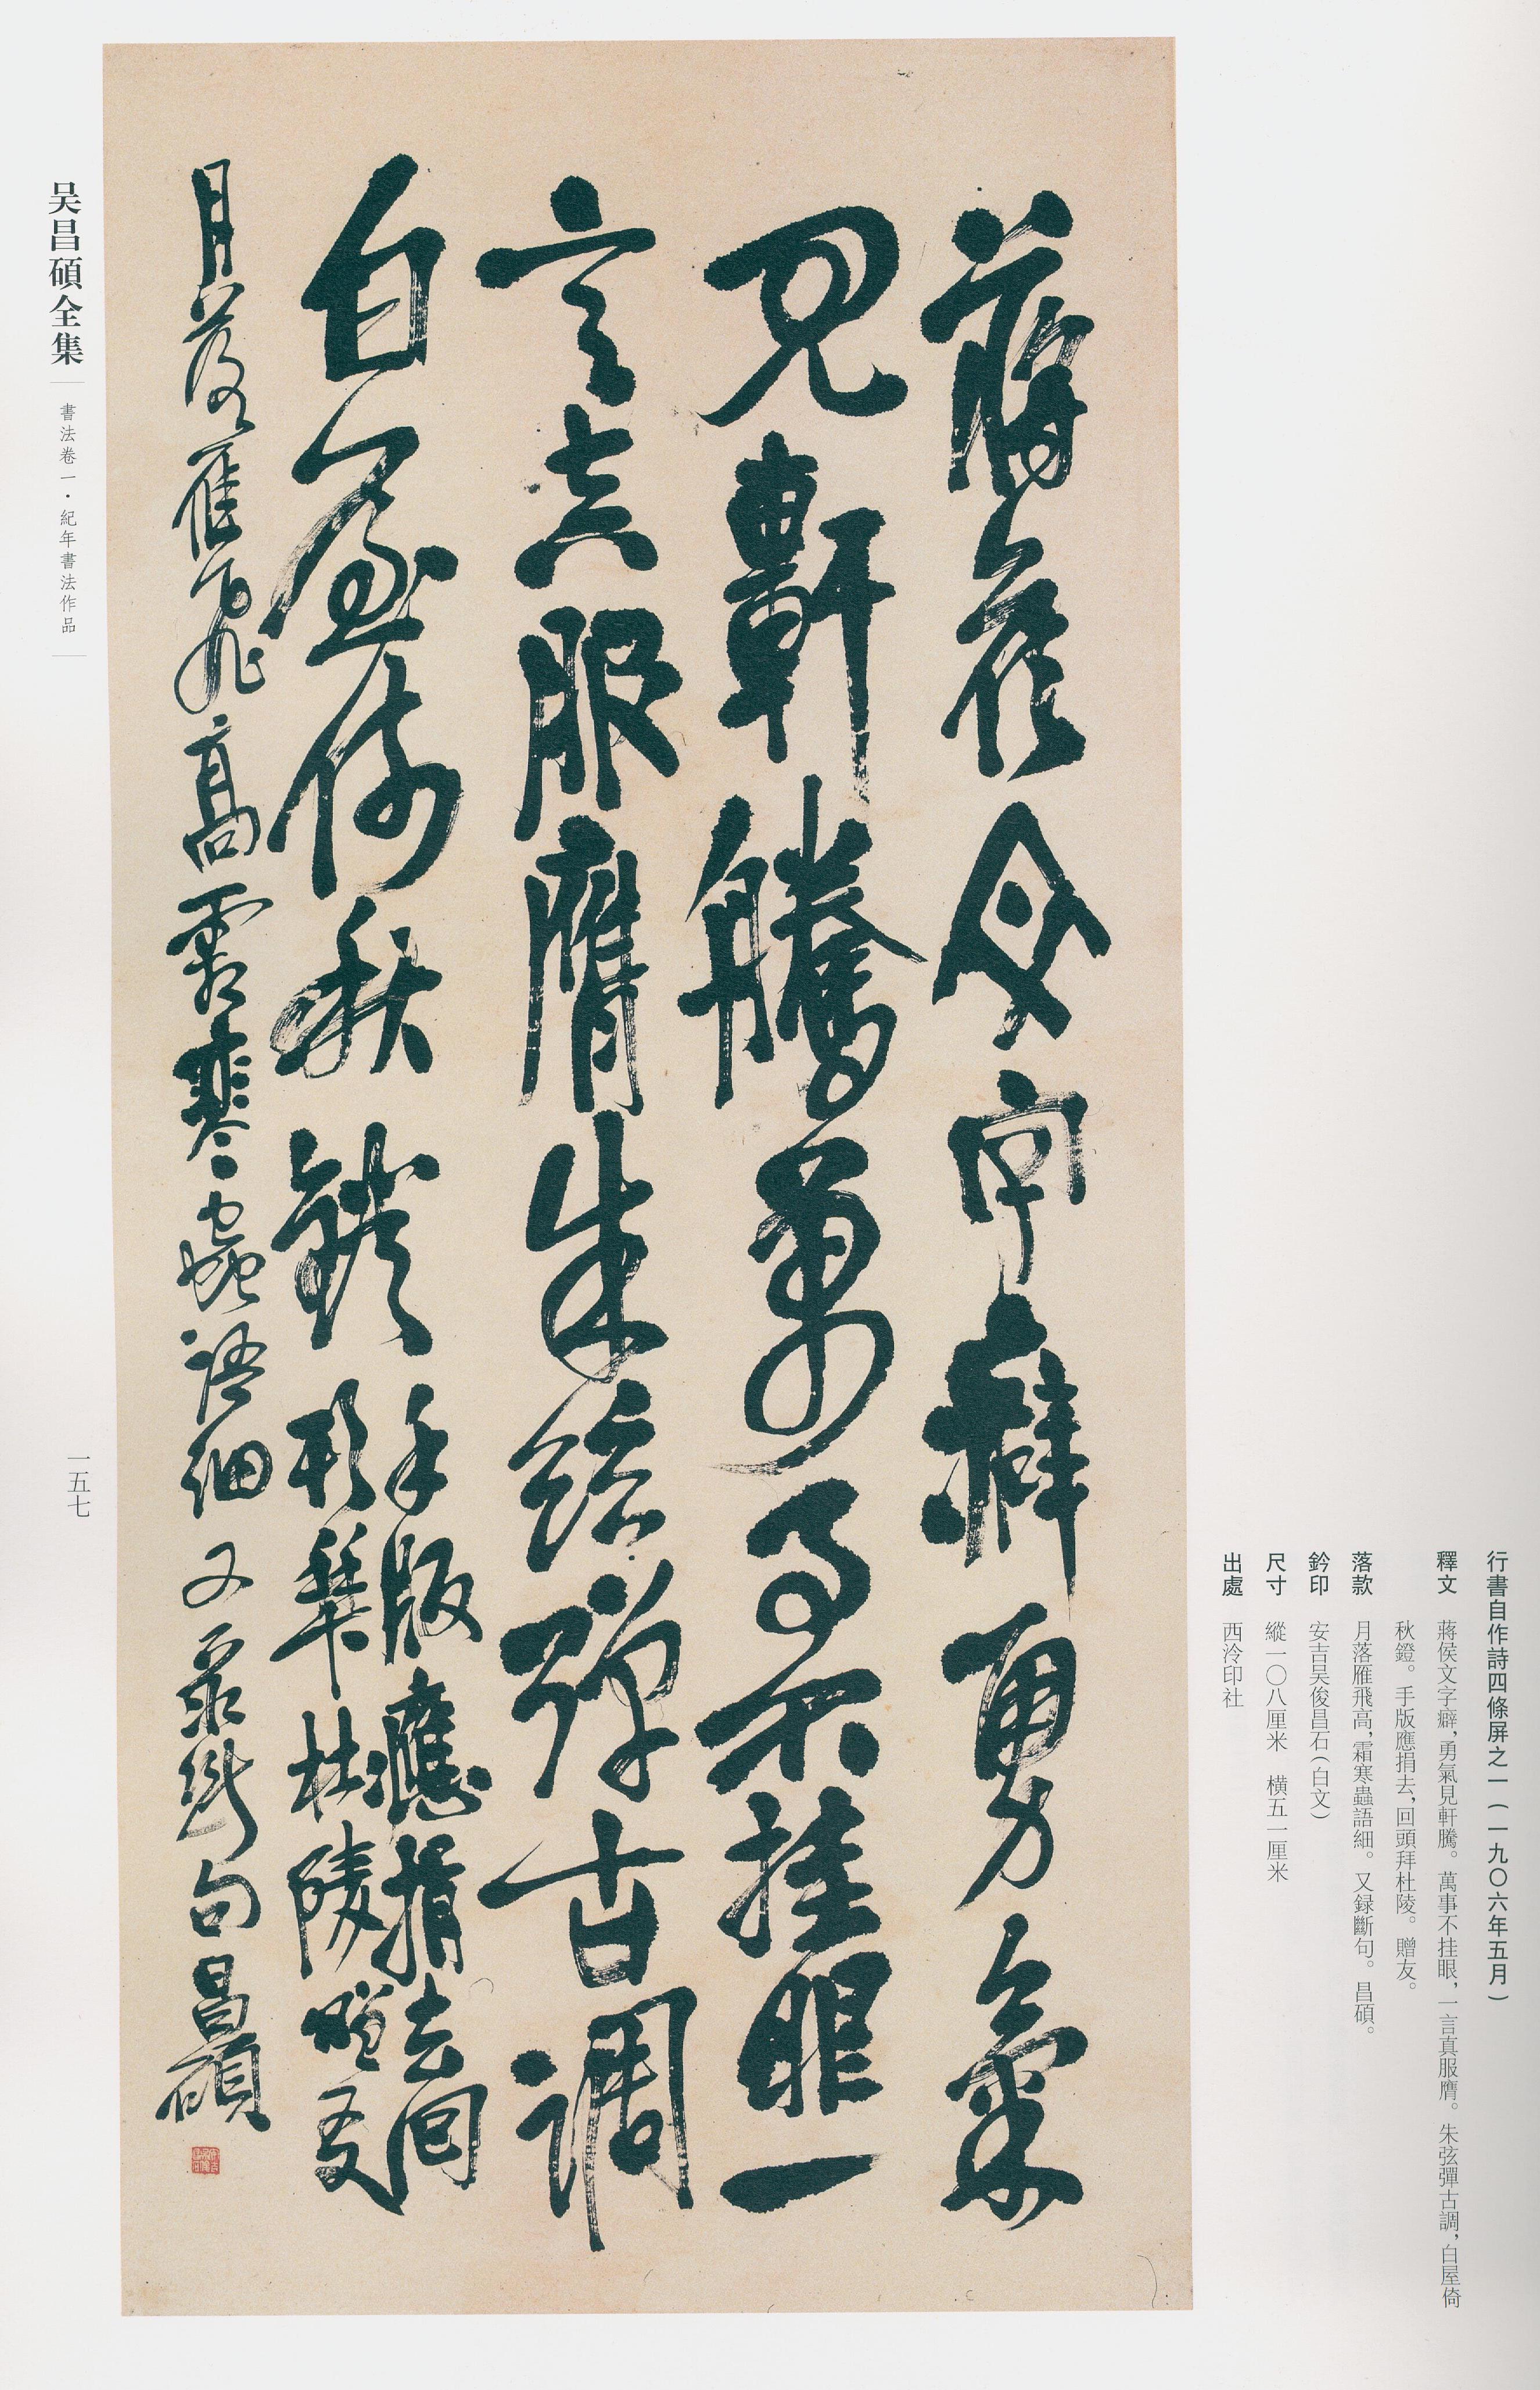 行書自作詩四條屏之一(一九〇六年五月)
釋文 蔣侯文字癖，勇氣見軒騰。萬事不挂眼，一言真服膺。朱弦彈古調，白屋倚
秋鐙。手版應捐去，回頭拜杜陵。贈友。
落款 月落雁飛高，霜寒蟲語細。又録斷句。昌碩。
鈐印 安吉吴俊昌石(白文)
尺寸 縱一〇八厘米 橫五一厘米
出處 西泠印社
蔣侯文字癖勇氣
見軒騰萬事不挂眼一
言真服膺朱弦彈古調
白屋倚秋鐙手版應捐去回
形拜杜陵贈友
月落雁飛高霜寒蟲語細又录斷句昌碩
吴昌碩全集
書法卷一·紀年書法作品
一五七